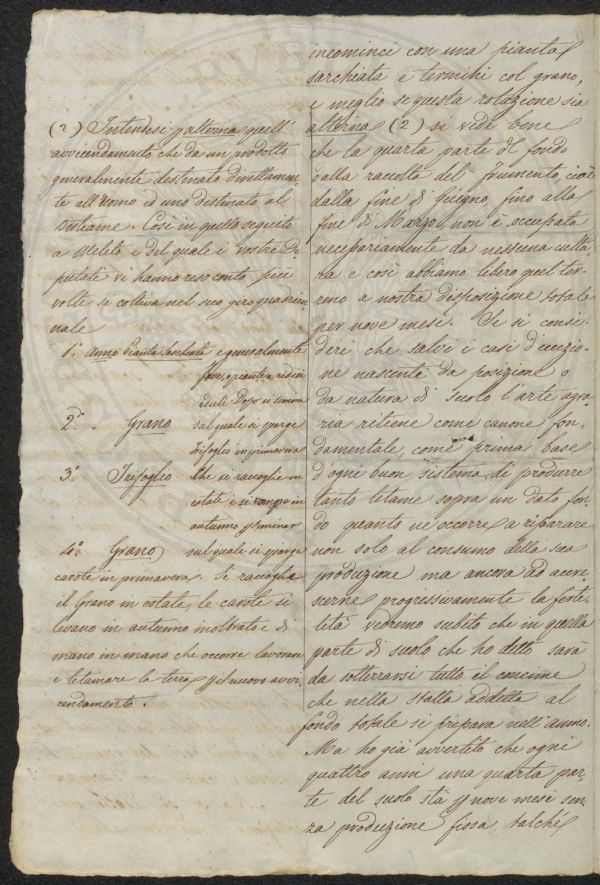 incominci con una pianta
sarchiata e termini col grano,
e meglio se questa rotazione sia
alterna (2) si vede bene
che la quarta parte del fondo
dalla raccolta del frumento, cioè
dalla fine di Giugno, fino alla
fine di Marzo non è occupata
necessariamente da nessuna cultu-
ra e così abbiamo libero quel ter-
reno a nostra disposizione totale
per nove mesi. Se si consi-
deri che salvi i casi d'eccezio-
ne nascente da posizione o
da natura di suolo l'arte agra-
ria ritiene come canone fon-
damentale, come prima base
d'ogni buon sistema di produrre
tanto letame sopra un dato fon-
do quanto ne occorre a riparare
non solo al consumo della sua
produzione ma ancora ad accre-
scerne progressivamente la ferti-
lità vedremo subito che in quella
parte di suolo che ho detto sarà
da sotterrarsi tutto il concime
che nella stalla addetta al
fondo totale si prepara nell'anno.
Ma ho già avvertito che ogni
quattro anni una quarta par-
te del suolo stà p nove mesi sen-
za produzione fissa, talché
(2) Intendesi p alterna quell'
avvicendamento che da un prodotto
generalmente destinato direttamen-
te all'uomo id uno destinato al
bestiame. Così in questo seguito
a Meleto e del quale i nostri De-
putati vi hanno reso conto più
volte si coltiva nel suo giro quadrien-
nale
1.° Anno Piante sarchiate e generalmente
fave, e piante a radici
eduli. Dopo si semina
2.° " Grano sul quale si sparge
trifoglio in primavera
3.° Trifoglio Che si raccoglie in
estate e si vanga in
autunno p seminar
4.° Grano sul quale si sparge
carote in primavera. Si raccoglie
il Grano in estate, le carote si
levano in autunno inoltrato e di
mano in mano che occorre lavorare
e letamare la terra p il nuovo avvi-
cendamento.